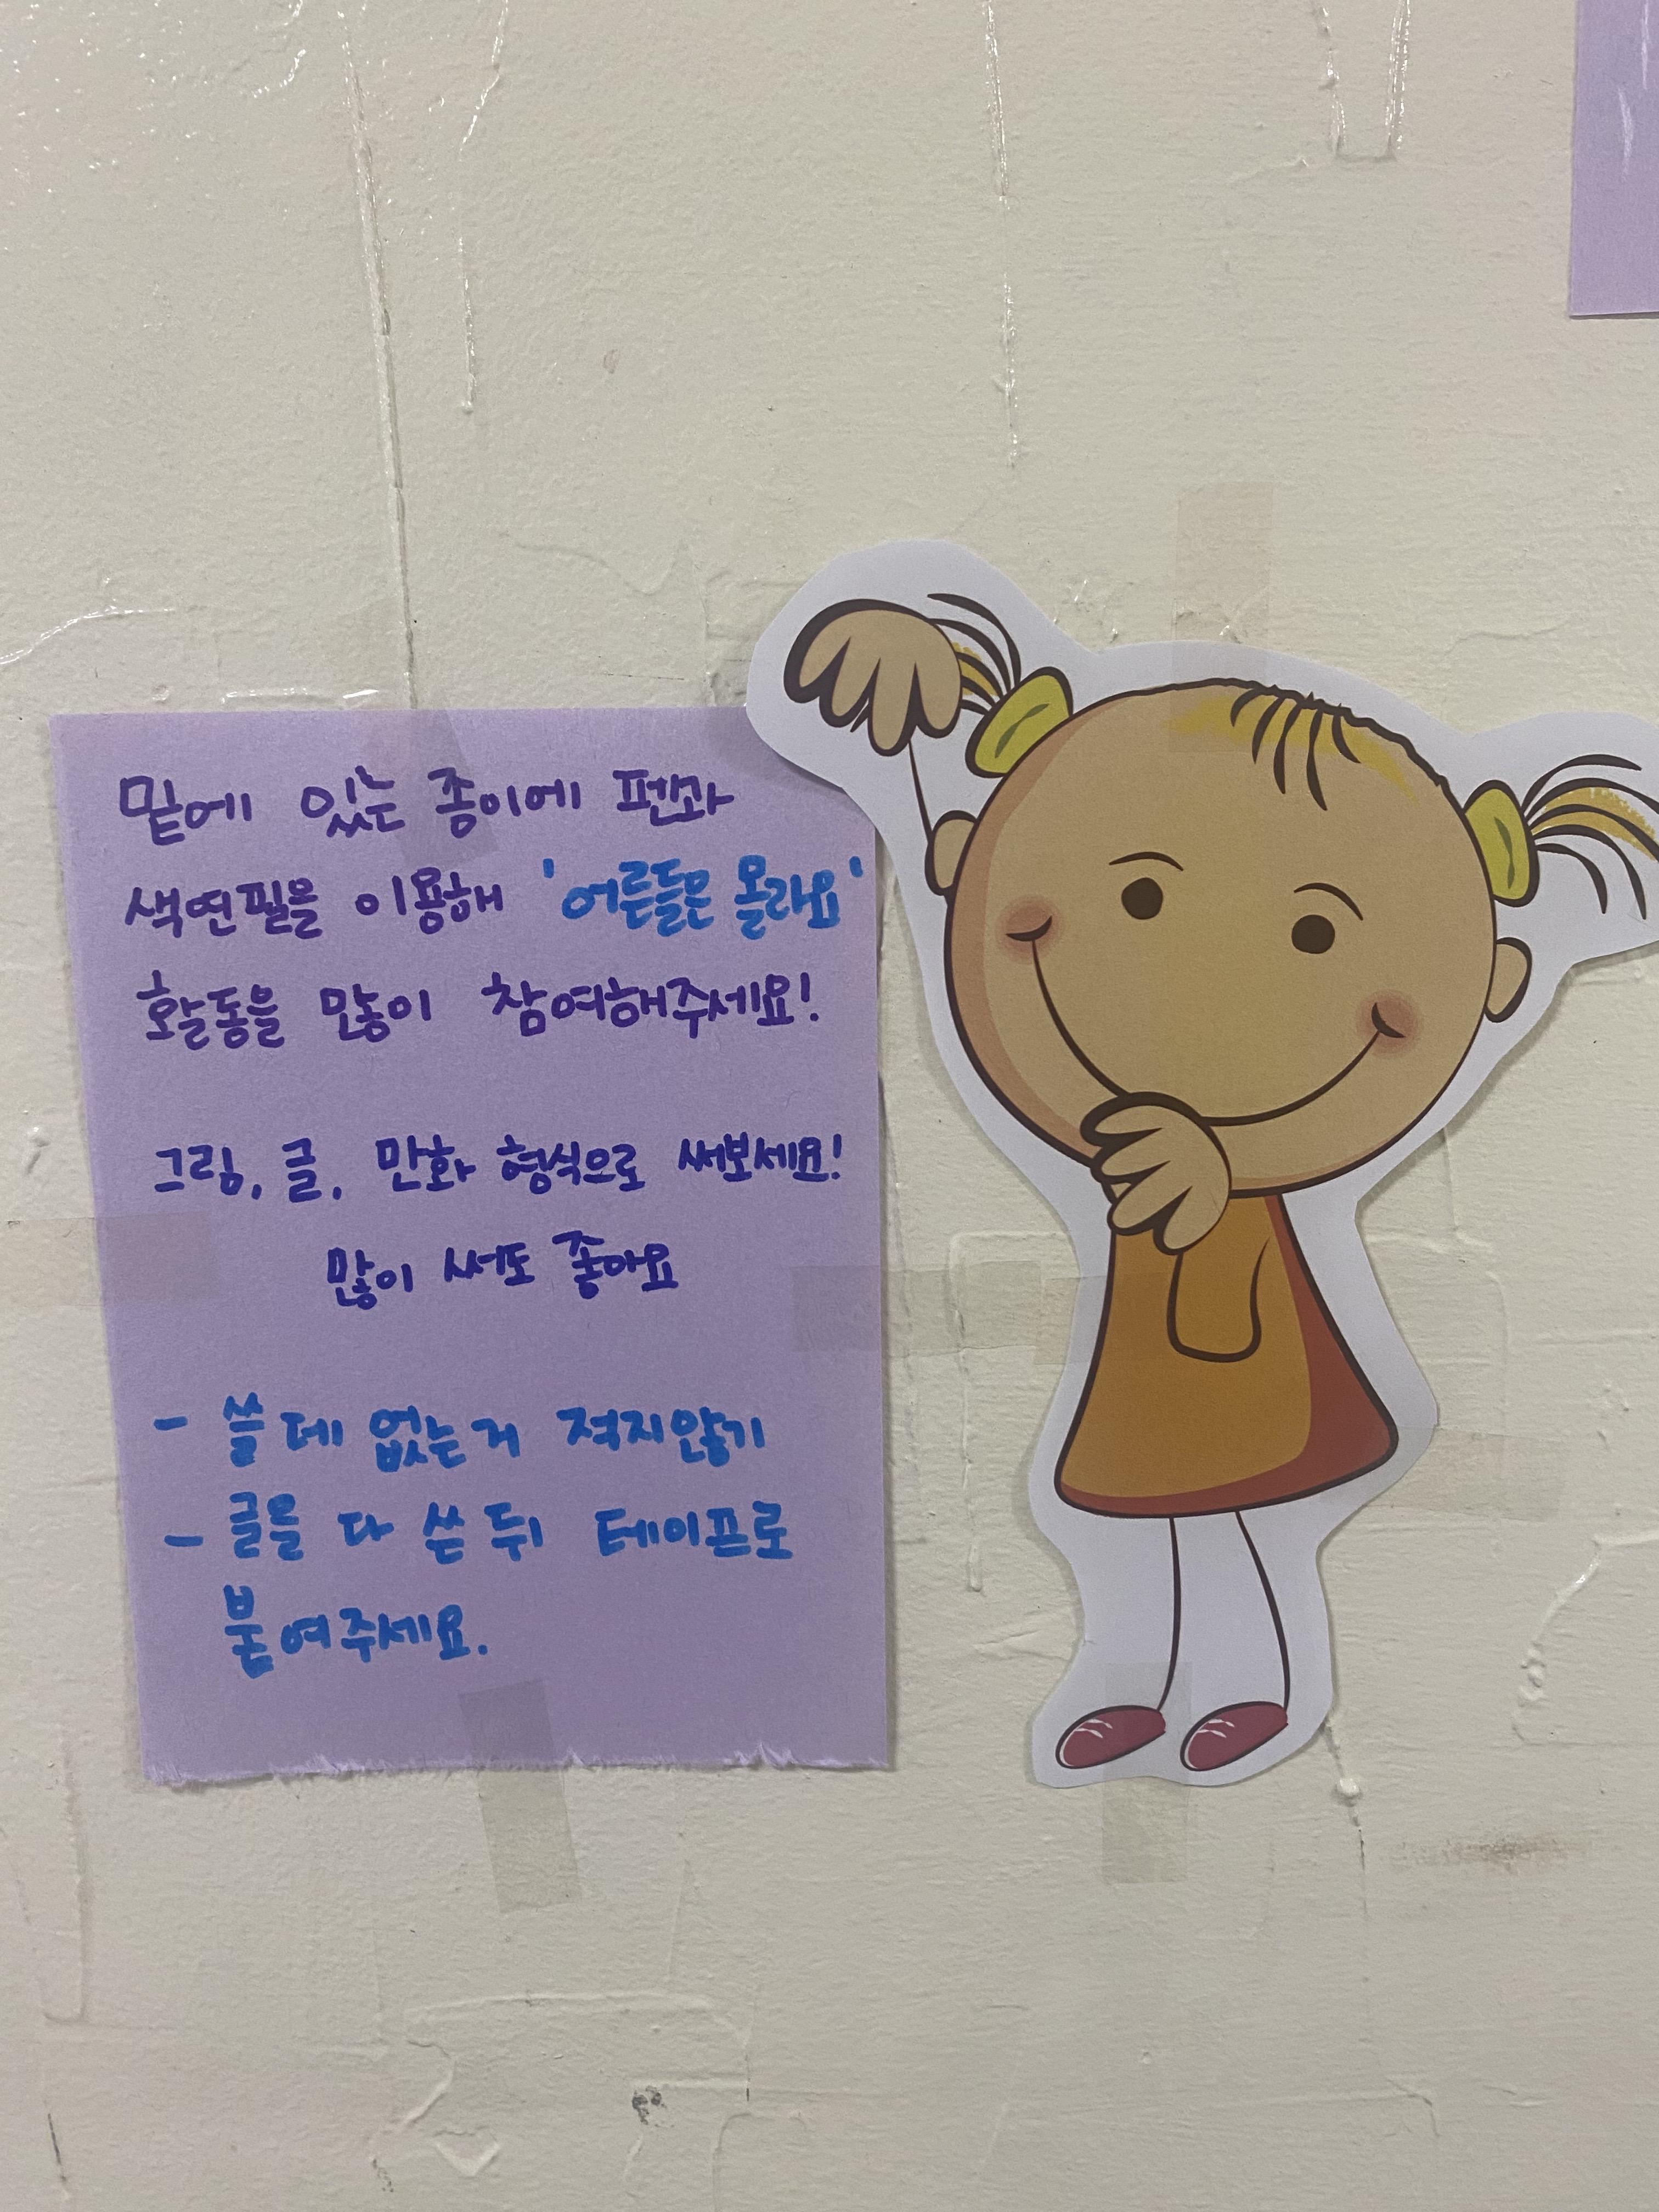 밑에 있는 종이에 펜과
색연필을 이용해 '어른들은 몰라요'
활동을 많이 참여해주세요!
그림, 글, 만화 형식으로 써보세요!
많이 써도 좋아요
- 쓸데 없는거 적지않기
- 글을 다 쓴 뒤 테이프로
붙여주세요.